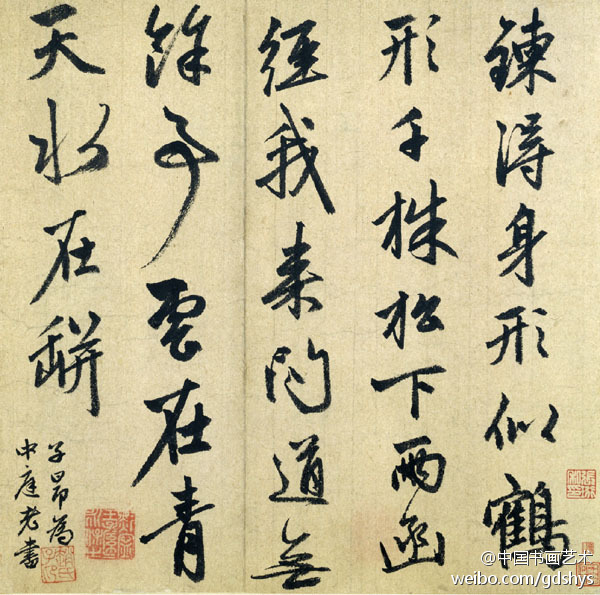 鍊得身形似鶴
形千株松下兩函
經我來問道無
餘事雲在青
天水在缾
子昂為
中庭老書
@中国书画艺术
weibo.com/gdshys